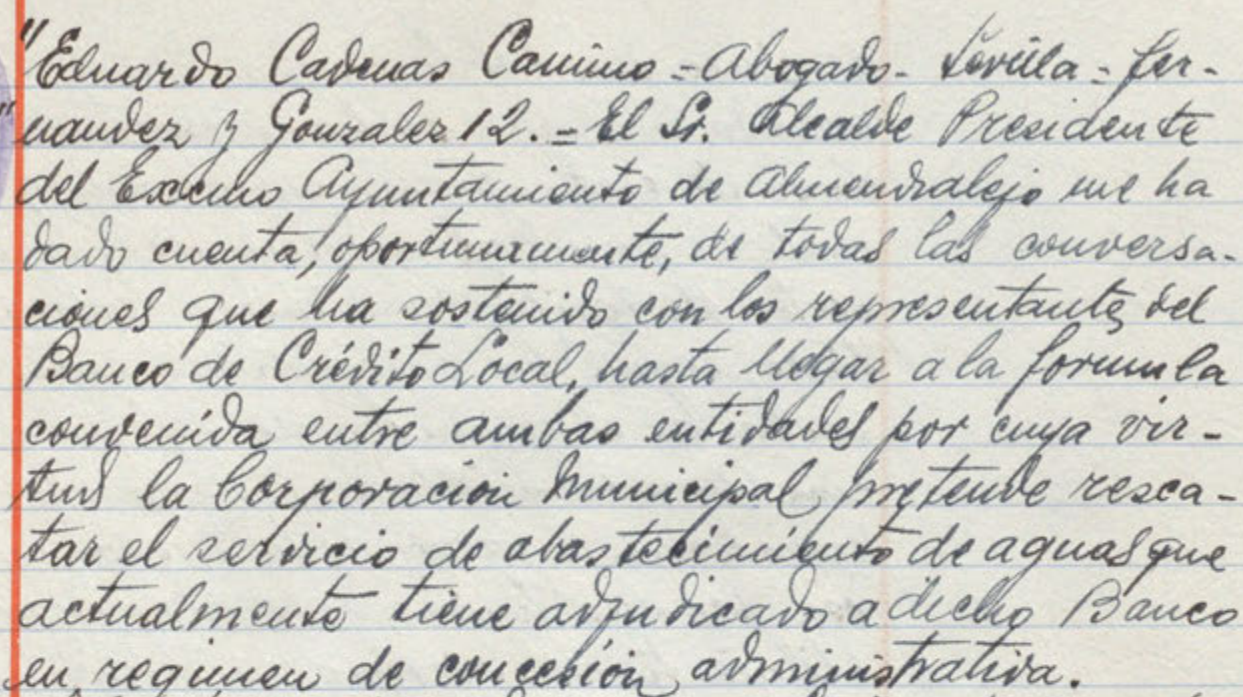 "Eduardo Cadenas Camino = Abogado - Sevilla = Fer-
"nandez y Gonzalez 12. = El Sr. Alcalde Presidente
del Excmo Ayuntamiento de Almendralejo me ha
dado cuenta, oportunamente, de todas las conversa-
ciones que ha sostenido con los representantes del
Banco de Crédito Local, hasta llegar a la formula
convenida entre ambas entidades por cuya vir-
tud la Corporación Municipal pretende resca-
tar el servicio de abastecimiento de aguas que
actualmente tiene adjudicado a dicho Banco
en regimen de concesión administrativa.